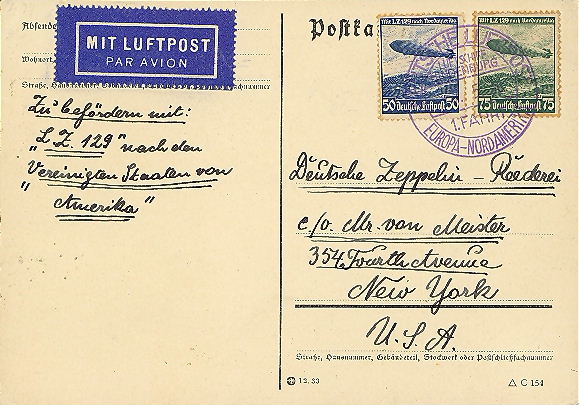 Absende
MIT LUFTPOST
PAR AVION
Wohnort,
Straße, Hausnummer
Zu befördern mit:
„L.Z. 129" nach den
Vereinigten Staaten von
„Amerika"
Postka
Mit L.Z.129 nach Nordamerika
50 Deutsche Luftpost 50
Mit L.Z.129 nach Nordamerika
75 Deutsche Luftpost 75
1. FAHRT
EUROPA-NORDAMERIKA
Deutsche Zeppelin-Reederei
c/o. Mr. von Meister
354 Fourth Avenue
New York
U.S.A.
Straße, Hausnummer, Gebäudeteil, Stockwerk oder Postschließfachnummer
C 154